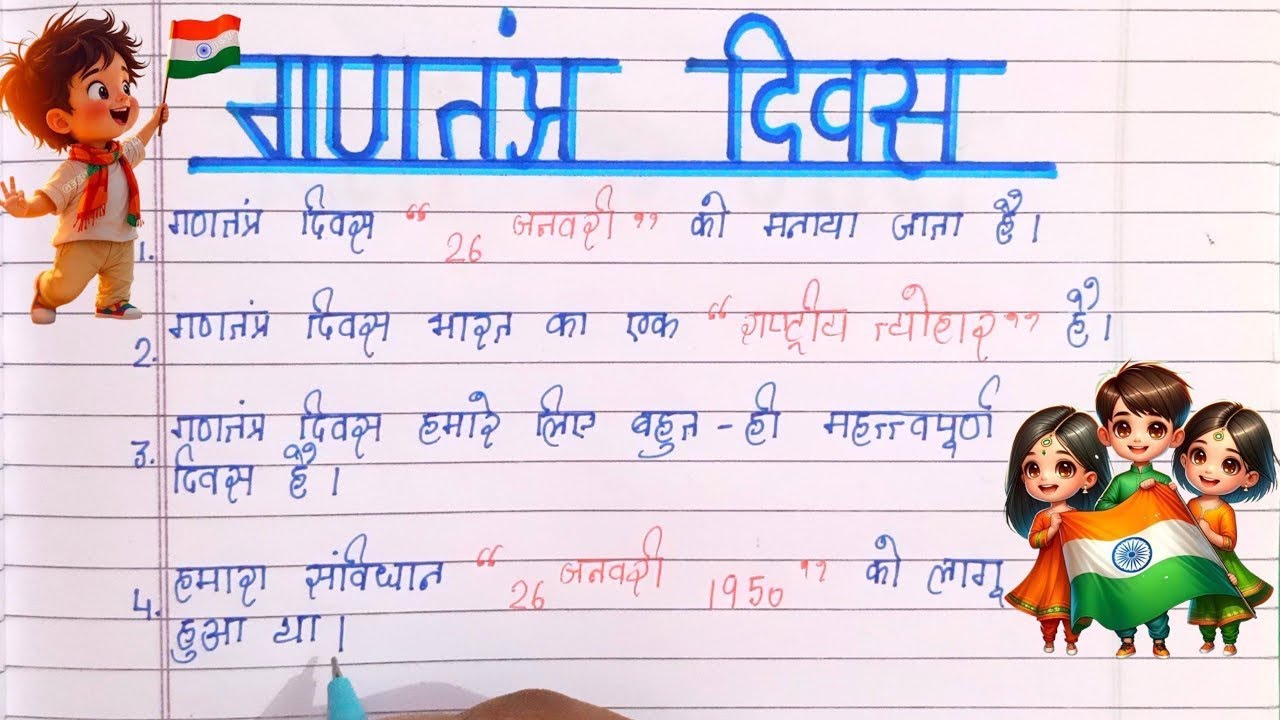 गणतंत्र दिवस
1. गणतंत्र दिवस “ 26 जनवरी ” को मनाया जाता है।
2. गणतंत्र दिवस भारत का एक “ राष्ट्रीय त्योहार ” है।
3. गणतंत्र दिवस हमारे लिए बहुत - ही महत्त्वपूर्ण
दिवस है।
4. हमारा संविधान “ 26 जनवरी 1950 ” को लागू
हुआ था।